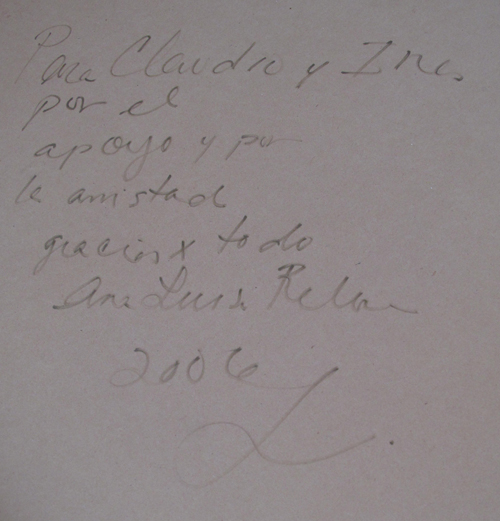 Para Claudio y Ines
por el
apoyo y por
la amistad
gracias x todo
Ana Luisa
2006